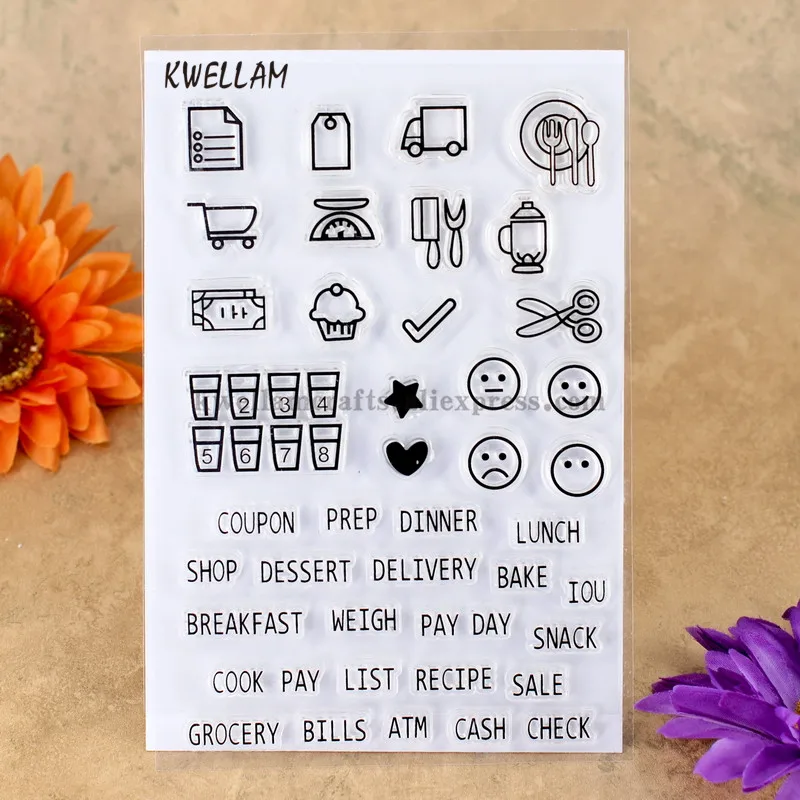 KWELLAM
1 2 3 4
kwellamcrafts.aliexpress.com
5 6 7 8
COUPON PREP DINNER LUNCH
SHOP DESSERT DELIVERY BAKE IOU
BREAKFAST WEIGH PAY DAY SNACK
COOK PAY LIST RECIPE SALE
GROCERY BILLS ATM CASH CHECK